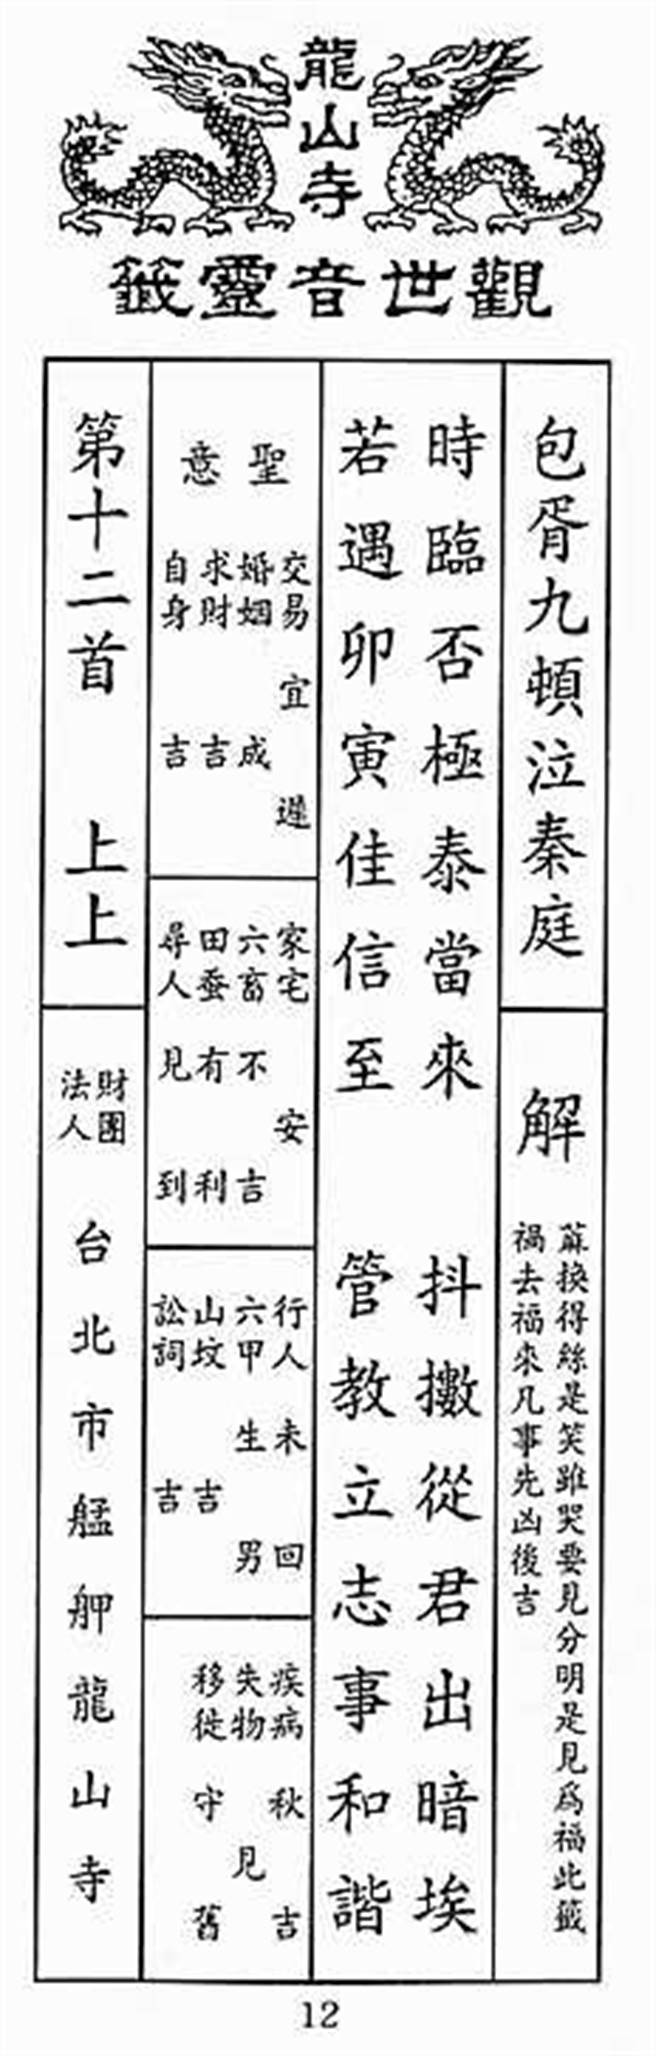 龍山寺
觀世音靈籤
包胥九頓泣秦庭
解
蔴換得絲是笑雖哭要見分明是見為福此籤
禍去福來凡事先凶後吉
時臨否極泰當來 抖擻從君出暗埃
若遇卯寅佳信至 管教立志事和諧
聖意
交易 宜遲
婚姻 成
求財 吉
自身 吉
家宅 安
六畜 不吉
田蚕 有利
尋人 見到
行人 未回
六甲 生男
山坟 吉
訟詞 吉
疾病 秋吉
失物 見
移徙 守舊
第十二首 上上
財團法人
台北市艋舺龍山寺
12